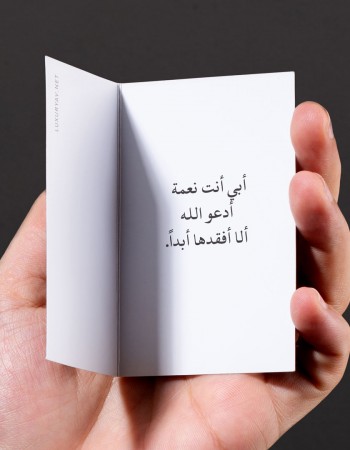 أبي أنت نعمة
أدعو الله
ألا أفقدها أبداً.
LUXURYAY.NET